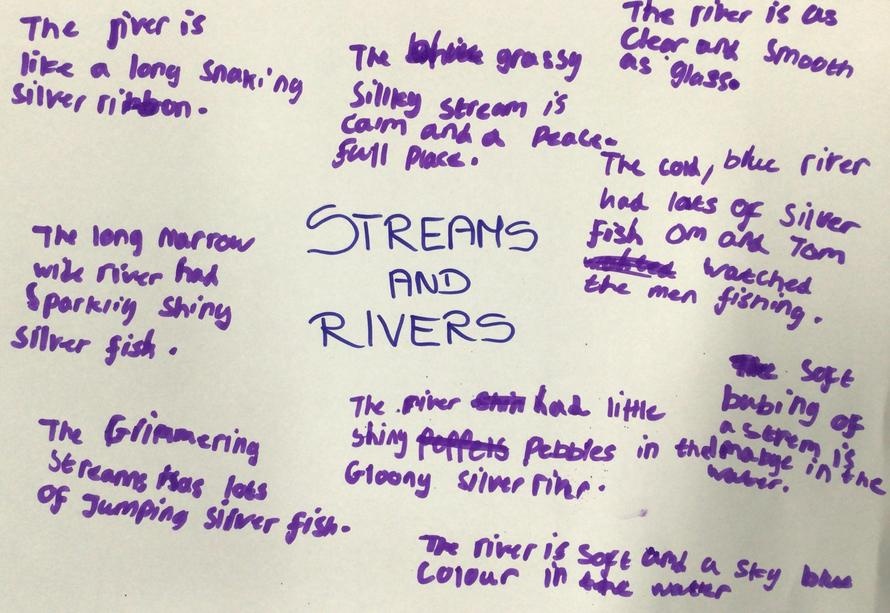 The river is
like a long snaking
silver ribbon.
The grassy
Sillky stream is
calm and a peace-
full place.
The river is as
Clear and smooth
as glass.
The cold, blue river
had lots of silver
fish Om and Tom
watched
the men fishing.
The long narrow
wide river had
Sparkliy shiny
silver fish.
STREAMS
AND
RIVERS
The Glimmering
Streams has lots
of jumping silver fish.
The river had little
shiny pebbles in the
Gloony silver river.
The Soft
bubing of
a strem is
in the
water.
The river is soft and a sky blue
colour in the watter